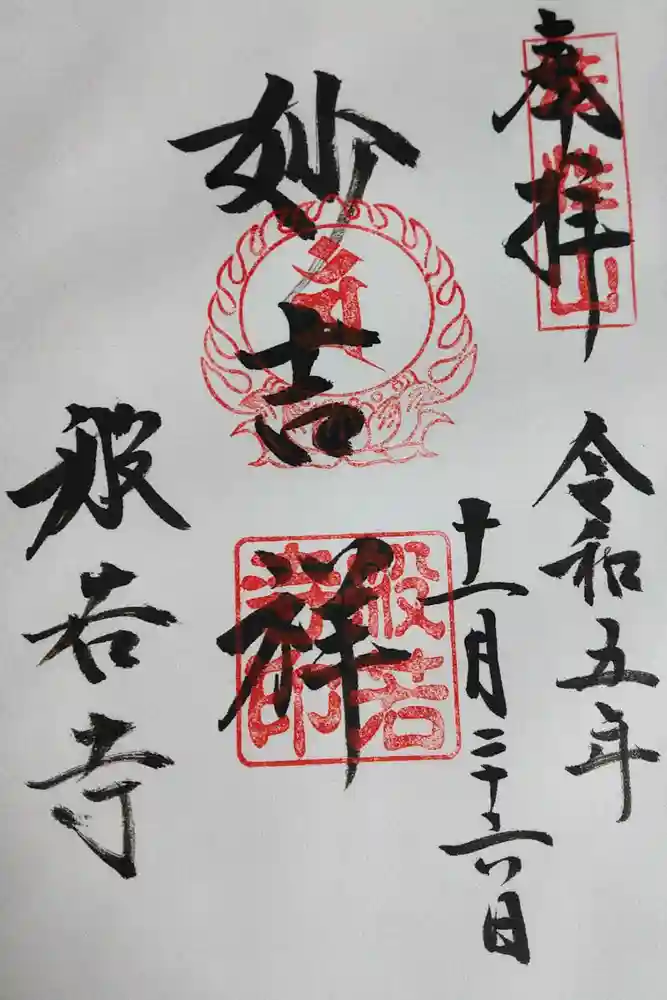 奉拝
令和五年
十一月二十六日
妙吉祥
般若寺
般若
寺印